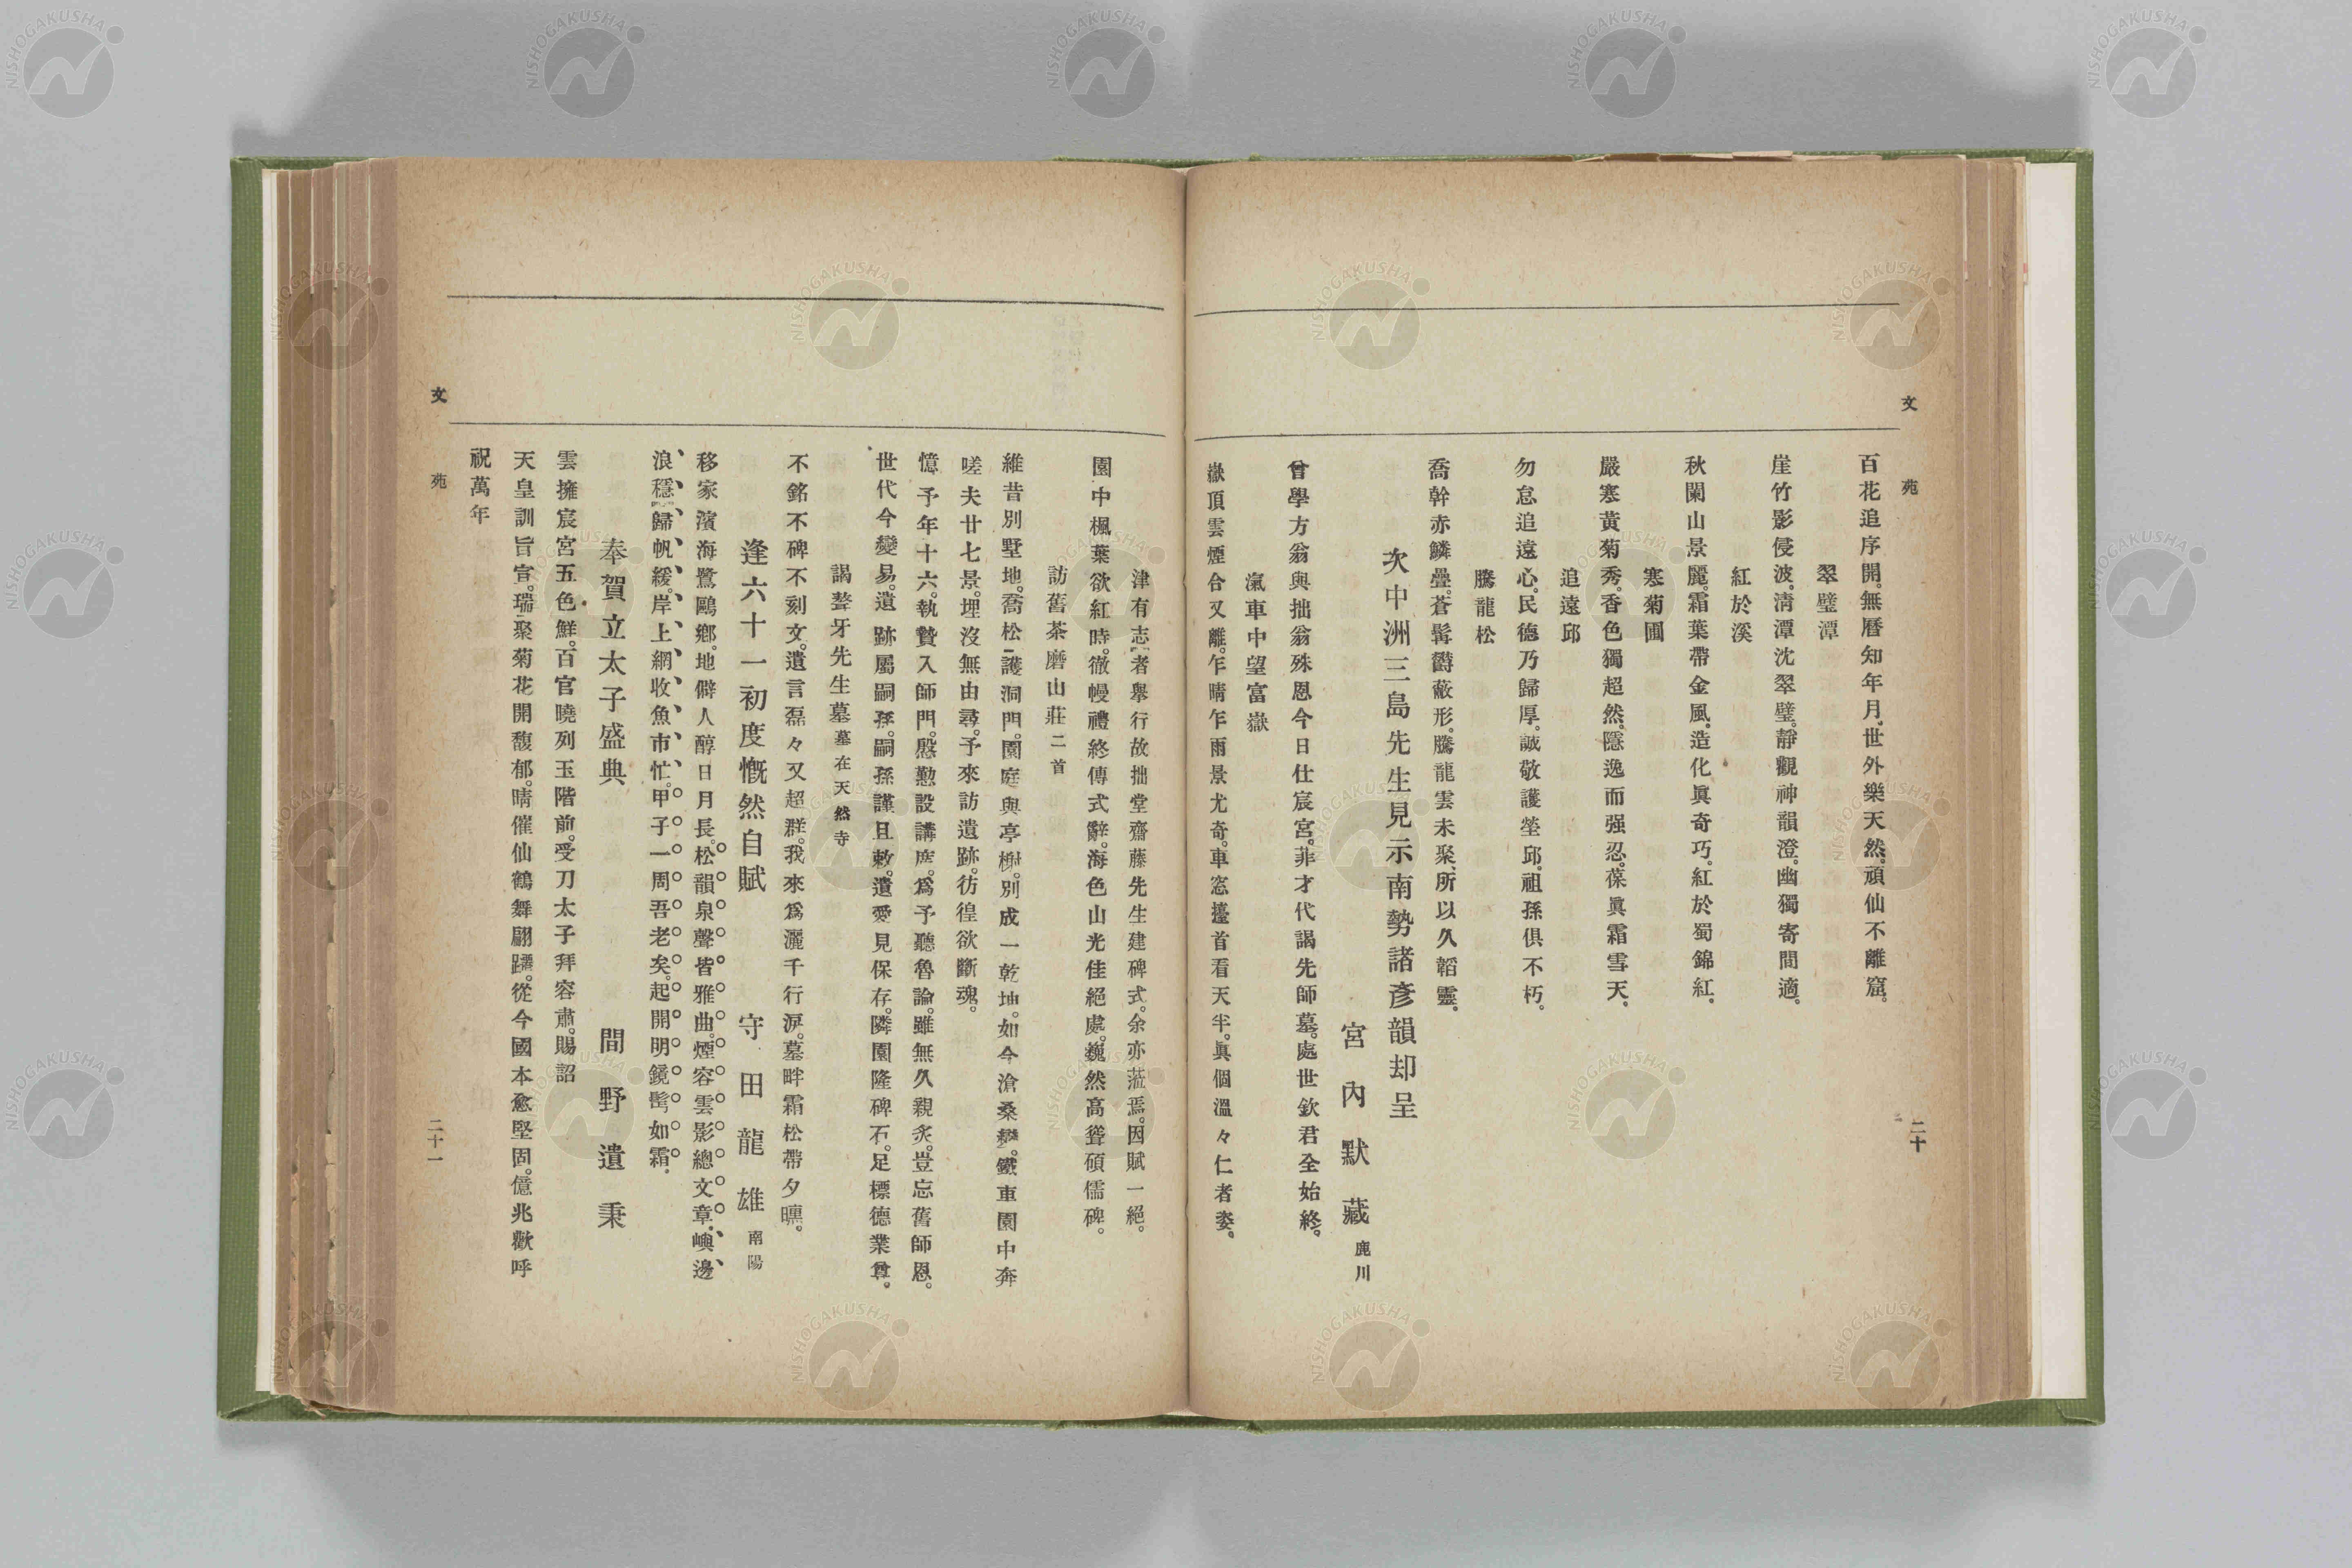 文苑 二十
百花追序開。無曆知年月。世外樂天然。頑仙不離窟。
翠璧潭
崖竹影侵波。淸潭沈翠璧。靜觀神韻澄。幽獨寄間適。
紅於溪
秋闌山景麗。霜葉帶金風。造化眞奇巧。紅於蜀錦紅。
寒菊圃
嚴寒黃菊秀。香色獨超然。隱逸而强忍。葆眞霜雪天。
追遠邱
勿怠追遠心。民德乃歸厚。誠敬護塋邱。祖孫俱不朽。
騰龍松
喬幹赤鱗疊。蒼髯欝蔽形。騰龍雲未聚。所以久韜靈。
次中洲三島先生見示南勢諸彥韻却呈
宮內默藏 鹿川
曾學方翁與拙翁殊恩今日仕宸宮。菲才代謁先師墓。處世欽君全始終。
滊車中望富嶽
嶽頂雲煙合又離。乍晴乍雨景尤奇。車窓擡首看天半。眞個溫々仁者姿。
津有志者擧行故拙堂齋藤先生建碑式。余亦蒞焉。因賦一絕。
園中楓葉欲紅時。徹幔禮終傳式辭。海色山光佳絕處。巍然高聳碩儒碑。
訪舊茶磨山莊二首
維昔別墅地。喬松護洞門。園庭與亭榭。別成一乾坤。如今滄桑變。鐵車園中奔
嗟夫廿七景。埋沒無由尋。予來訪遺跡。彷徨欲斷魂。
憶予年十六。執贄入師門。慇懃設講席。爲予聽魯論。雖無久親炙。豈忘舊師恩。
世代今變易。遺跡屬嗣孫。嗣孫謹且敕。遺愛見保存。隣園隆碑石。足標德業尊。
謁聱牙先生墓 墓在天然寺
不銘不碑不刻文。遺言磊々又超群。我來爲灑千行淚。墓畔霜松帶夕曛。
逢六十一初度慨然自賦 守田龍雄 南陽
移家濱海鷺鷗鄕。地僻人醇日月長。松韻泉聲皆雅曲。煙容雲影總文章。嶼邊
浪穩歸帆緩。岸上網收魚市忙。甲子一周吾老矣。起開明鏡髩如霜。
奉賀立太子盛典 間野遺秉
雲擁宸宮五色鮮。百官曉列玉階前。受刀太子拜容肅。賜詔
天皇訓旨宣。瑞聚菊花開馥郁。晴催仙鶴舞翩躚。從今國本愈堅固。億兆歡呼
祝萬年
文苑 二十一
NISHOGAKUSHA